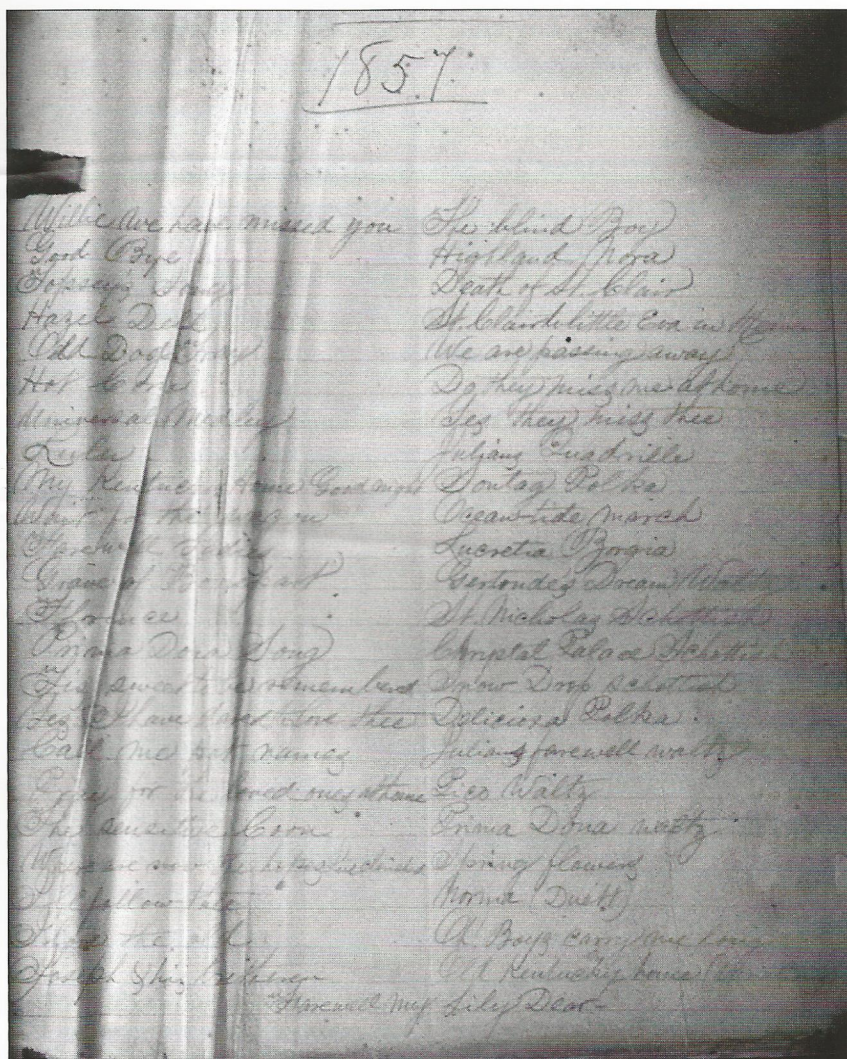 1857.
Willie we have missed you
Good Bye
Topsey's Song
Hazel Dell
Old Dog Tray
Hot Corn
Universal Medley
Lulu
My Kentucky Home Good night
Wait for the wagon
Farewell Ladies
Grave of Bonapart
Florence
Prima Dona Song
'Tis sweet to be remembered
Yes I have dared to love thee
Call me pet names
for the loved ones at home
The sensitive Coon
Where are now the hopes
I'll follow thee
Joseph & his bretheren
The blind Boy
Highland Nora
Death of St. Clair
St. Clair to little Eva in
We are passing away
Do they miss me at home
Yes they miss thee
Juliens Quadrille
Sontag Polka
Ocean-tide march
Lucretia Borgia
Gertrude's Dream Waltz
St. Nicholas Schottish
Crystal Palace Schottish
Snow Drop Schottish
Deliciosa Polka
Juliens farewell waltz
Pico Waltz
Prima Dona waltz
Spring flowers
Norma (Duett)
Oh Boys carry me long
Old Kentucky home
Farewell my Lily Dear